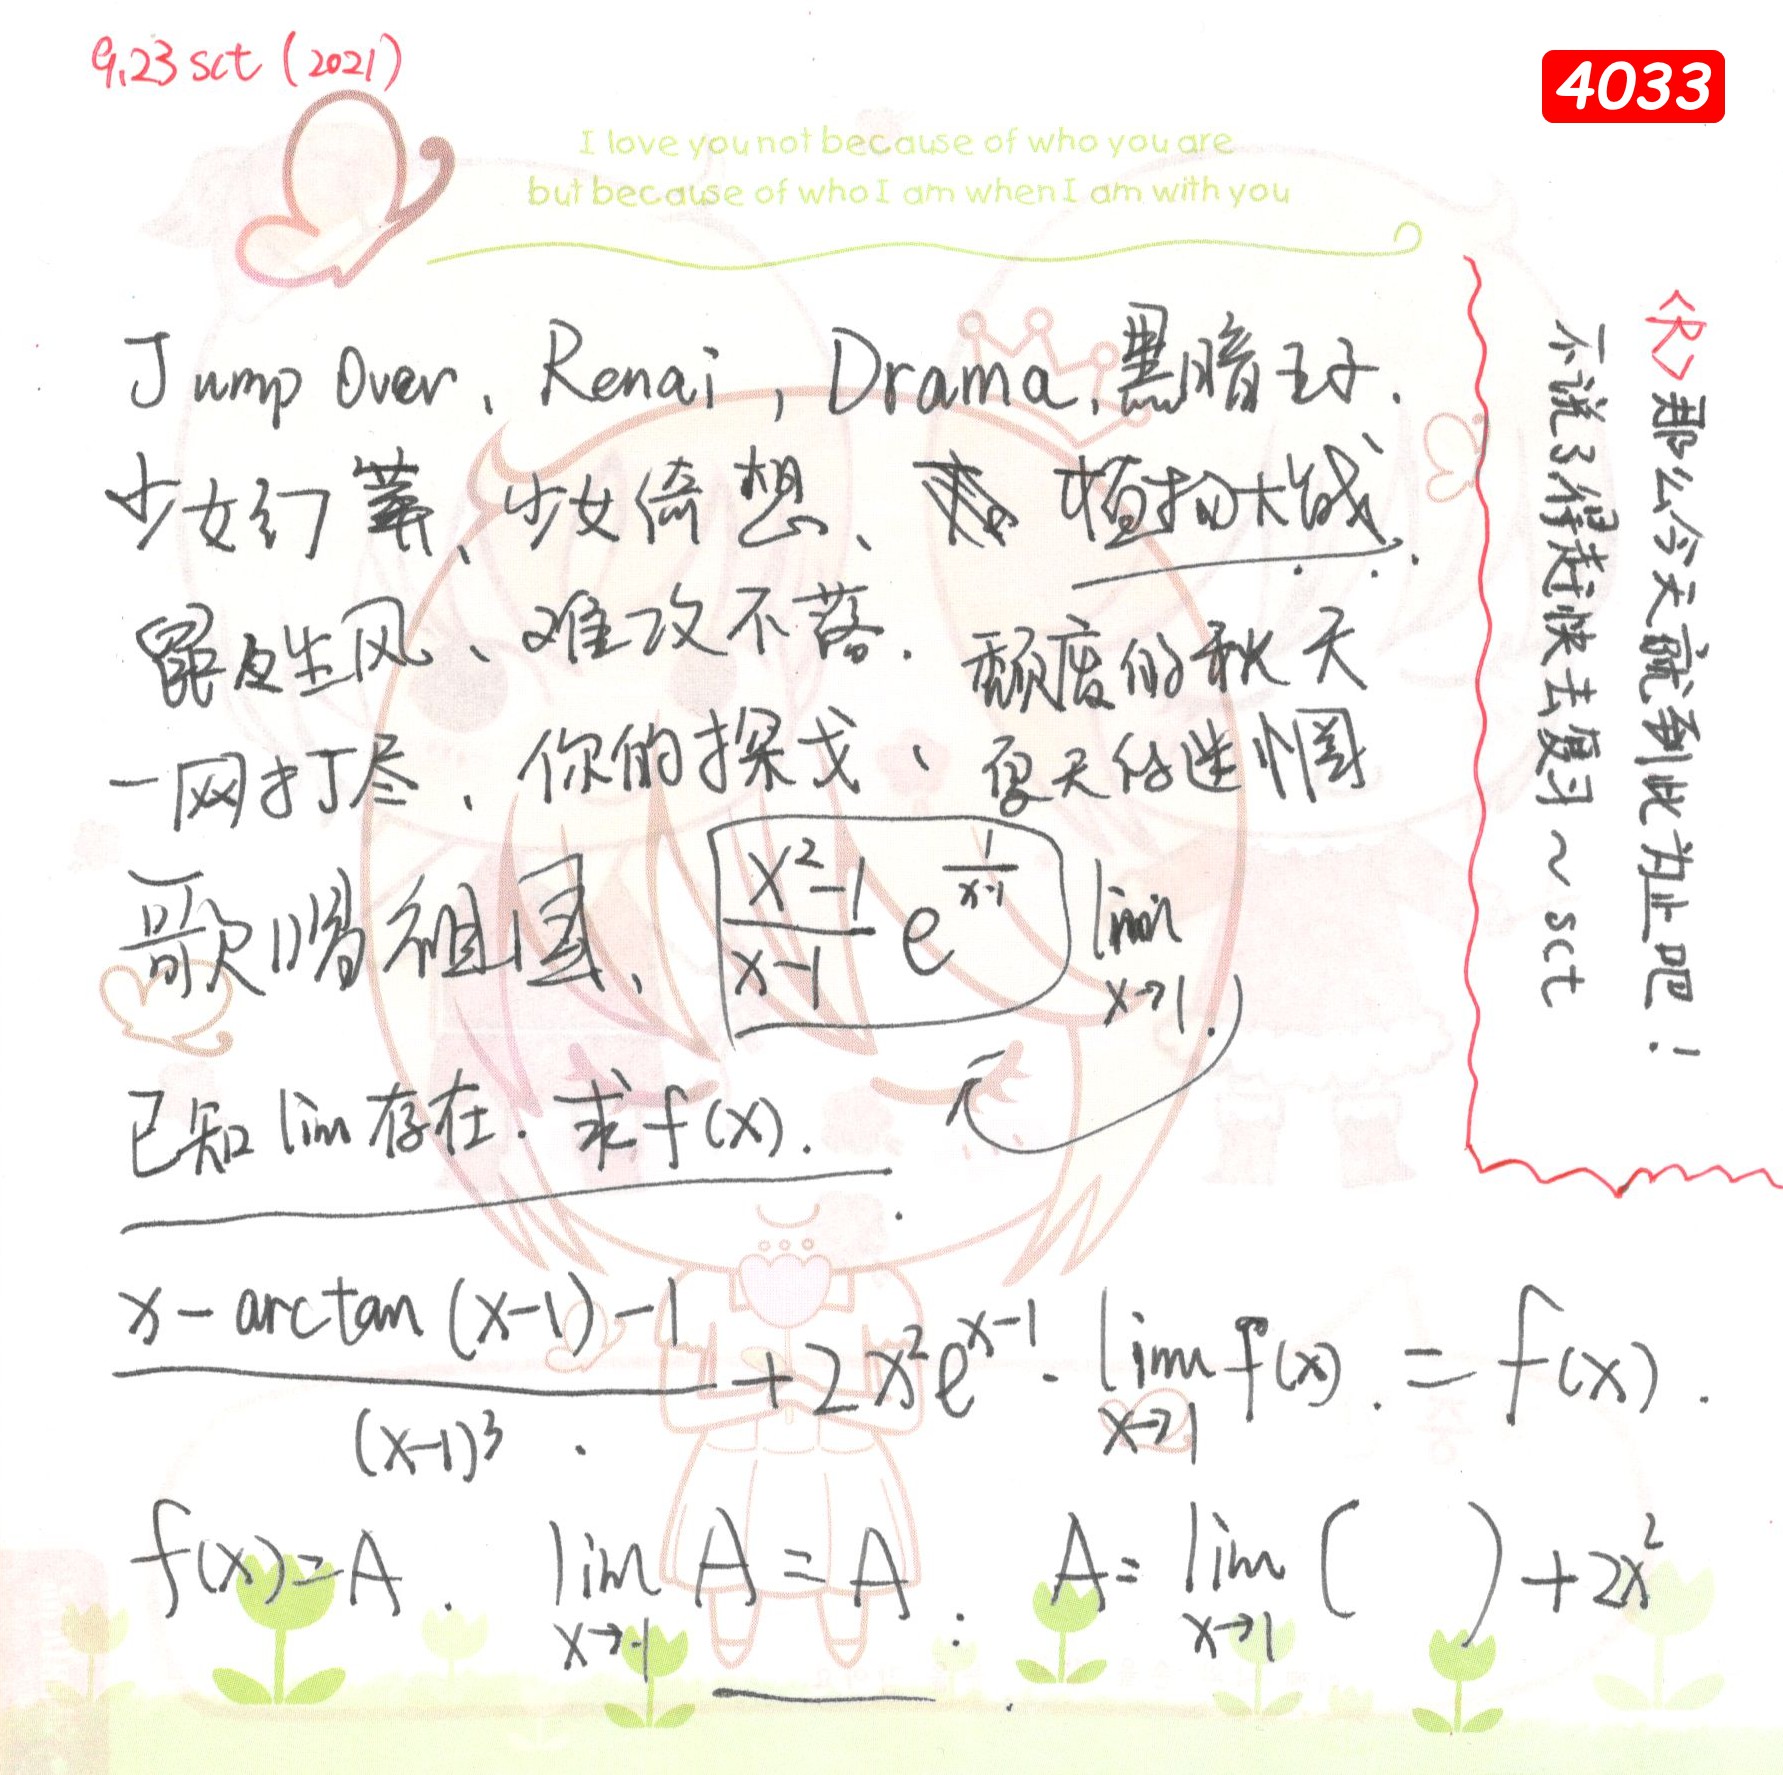 9.23 sct (2021)
4033
I love you not because of who you are
but because of who I am when I am with you
Jump Over、Renai，Drama、黑暗王子.
少女幻葬、少女倚想、植物大战.
罪夜生风、难攻不落. 颓废的秋天
一网打尽、你的探戈、夏天的迷惘
歌唱祖国、 x²-1/x-1 e^(1/x-1) lim x→1.
已知 lim 存在. 求 f(x).
x - arctan (x-1) -1 / (x-1)³ + 2x²e^(x-1) · lim x→1 f(x). = f(x).
f(x)=A. lim x→1 A = A. A= lim x→1 ( ) +2x²
<R> 那么今天就到此为止吧！
不说了得赶快去复习～sct